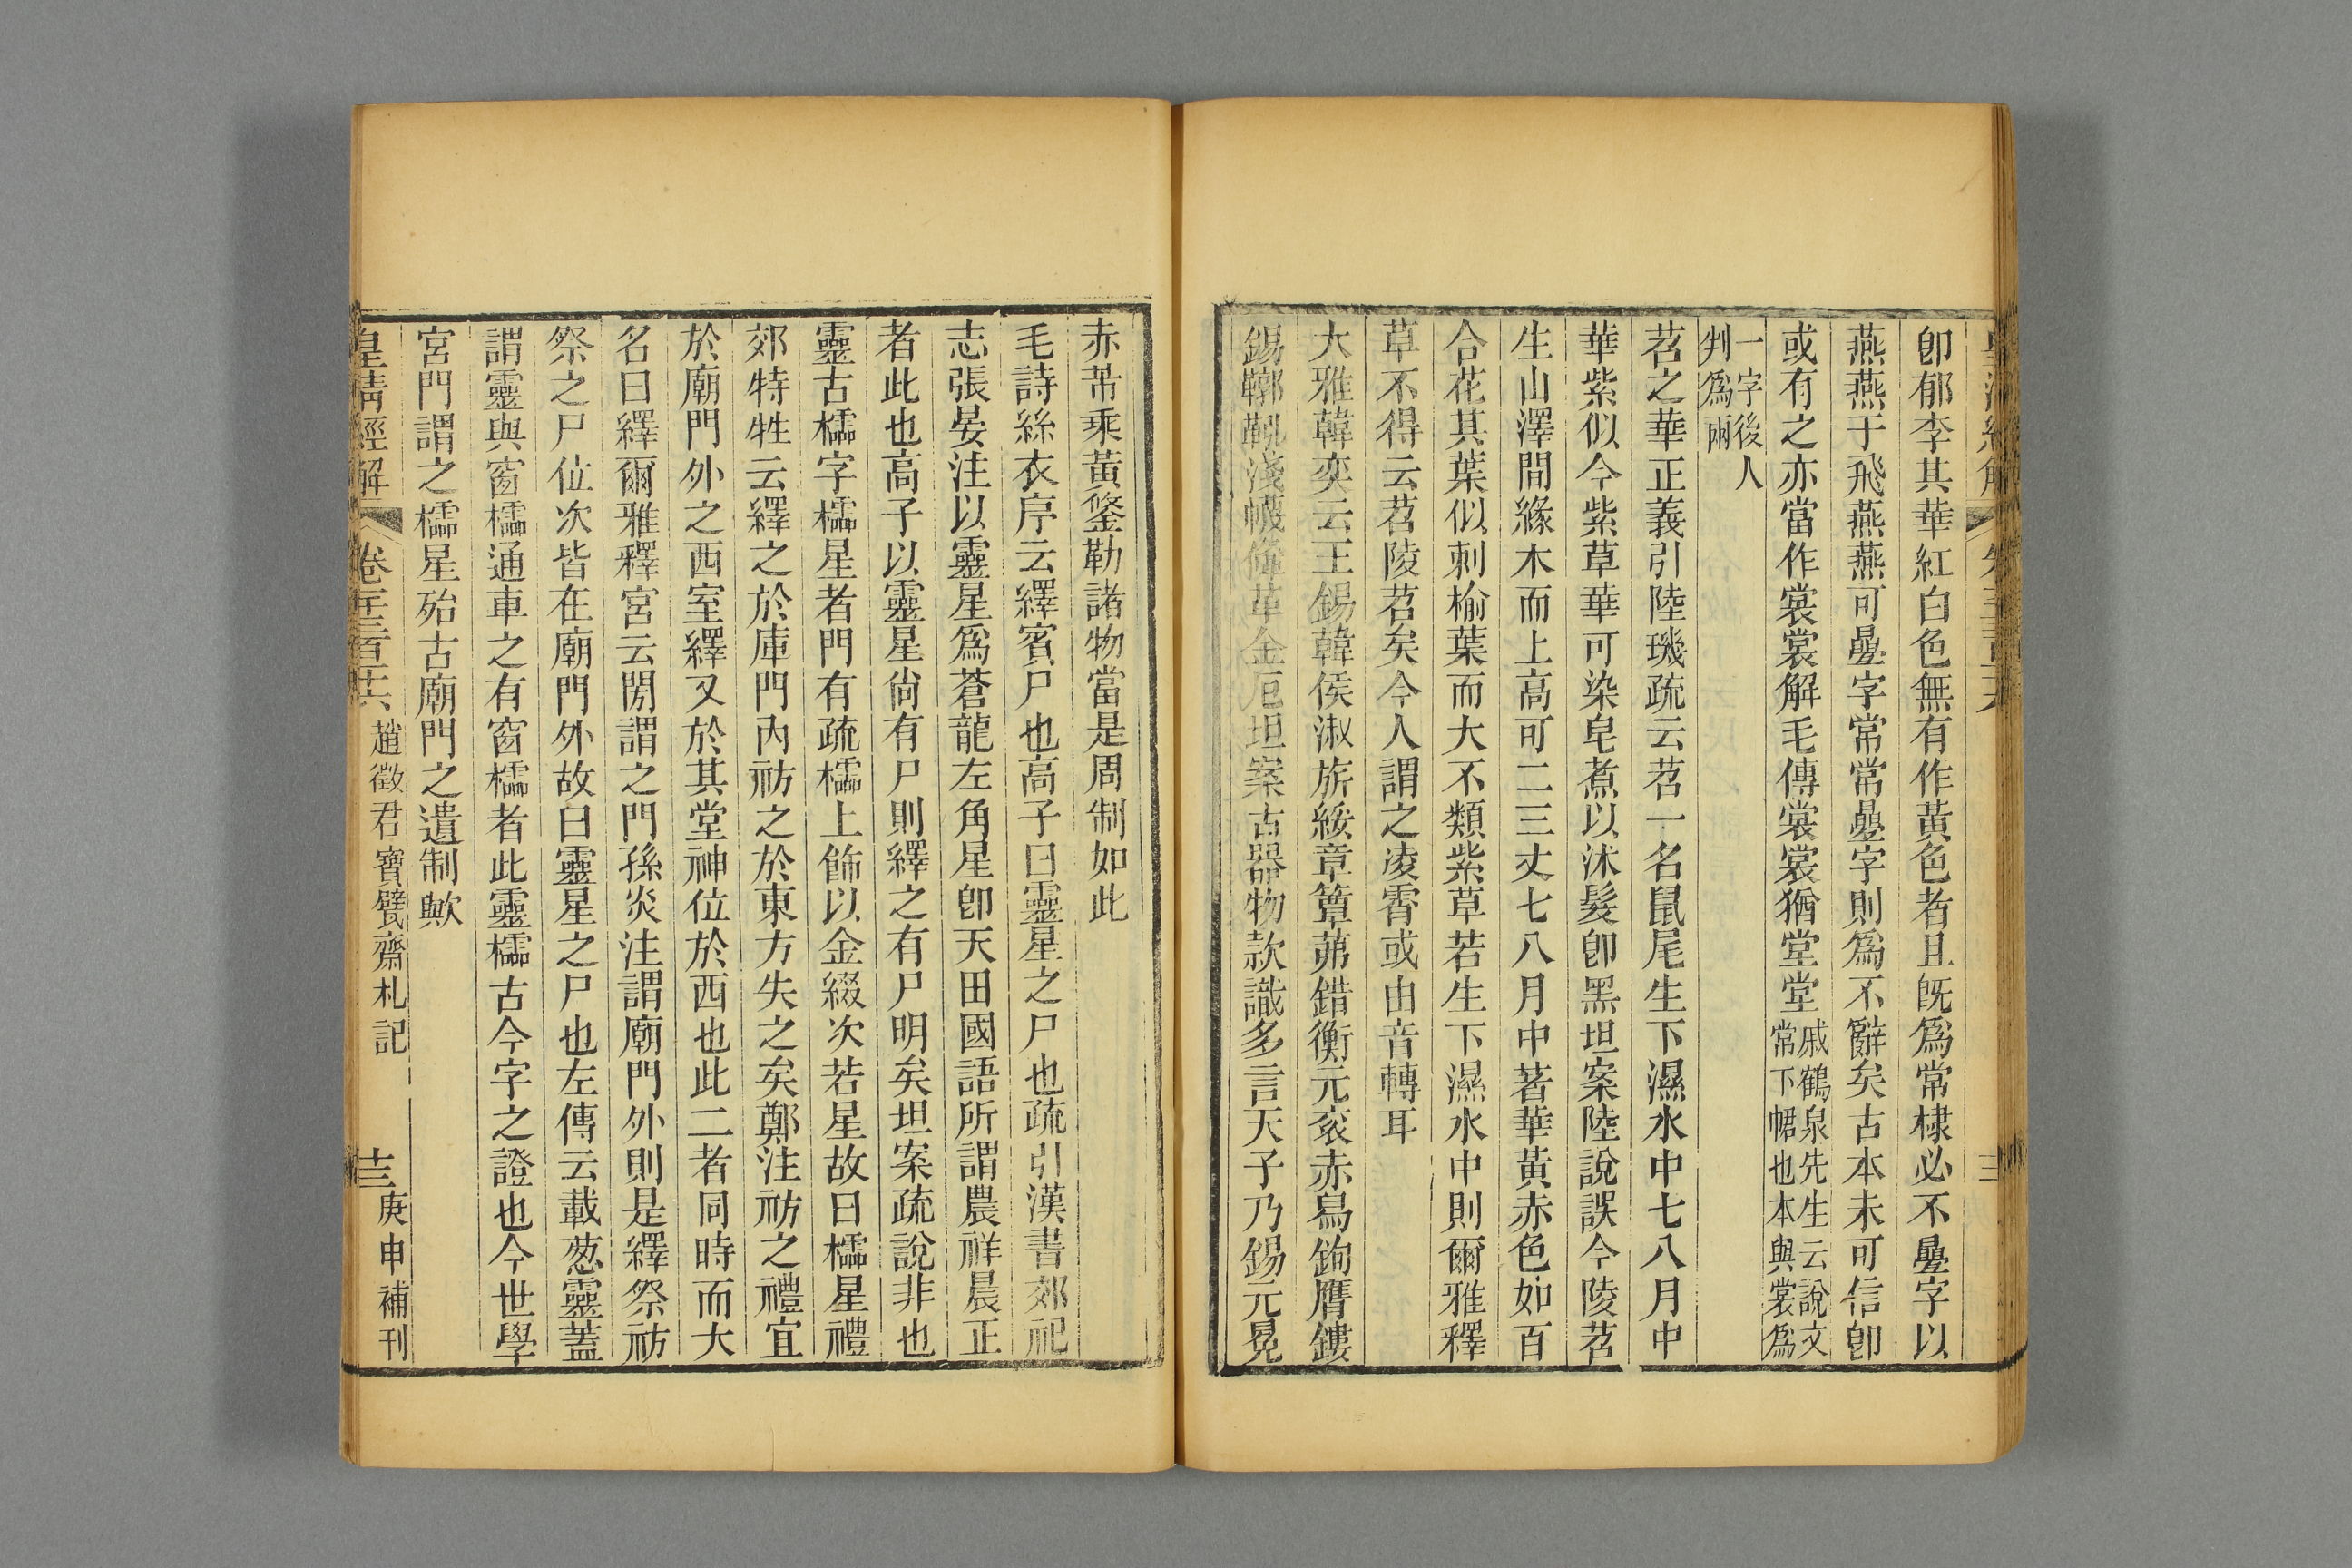 卽郁李其華紅白色無有作黃色者且旣爲常棣必不疊字以
燕燕于飛燕燕可疊字常常疊字則爲不辭矣古本未可信卽
或有之亦當作裳裳解毛傳裳裳猶堂堂
戚鶴泉先生云說文
常下帬也本與裳爲
一字後人
判爲兩
苕之華正義引陸璣疏云苕一名鼠尾生下濕水中七八月中
華紫似今紫草華可染皂煮以沐髮卽黑坦案陸說誤今陵苕
生山澤間緣木而上高可二三丈七八月中著華黃赤色如百
合花其葉似刺榆葉而大不類紫草若生下濕水中則爾雅釋
草不得云苕陵苕矣今人謂之凌霄或由音轉耳
大雅韓奕云王錫韓侯淑旂綏章簟茀錯衡元衮赤舄鉤膺鏤
錫鞹鞃淺幭鞗革金厄坦案古器物款識多言天子乃錫元冕
赤芾乘黃鋚勒諸物當是周制如此
毛詩絲衣序云繹賓尸也高子曰靈星之尸也疏引漢書郊祀
志張晏注以靈星爲蒼龍左角星卽天田國語所謂農祥晨正
者此也高子以靈星尙有尸則繹之有尸明矣坦案疏說非也
靈古櫺字櫺星者門有疏櫺上飾以金綴次若星故曰櫺星禮
郊特牲云繹之於庫門內祊之於東方失之矣鄭注祊之禮宜
於廟門外之西室繹又於其堂神位於西也此二者同時而大
名曰繹爾雅釋宮云閍謂之門孫炎注謂廟門外則是繹祭祊
祭之尸位次皆在廟門外故曰靈星之尸也左傳云載葱靈蓋
謂靈與窗櫺通車之有窗櫺者此靈櫺古今字之證也今世學
宮門謂之櫺星殆古廟門之遺制歟
皇清經解 卷一千三百十六 趙徵君寶甓齋札記 十三 庚申補刊